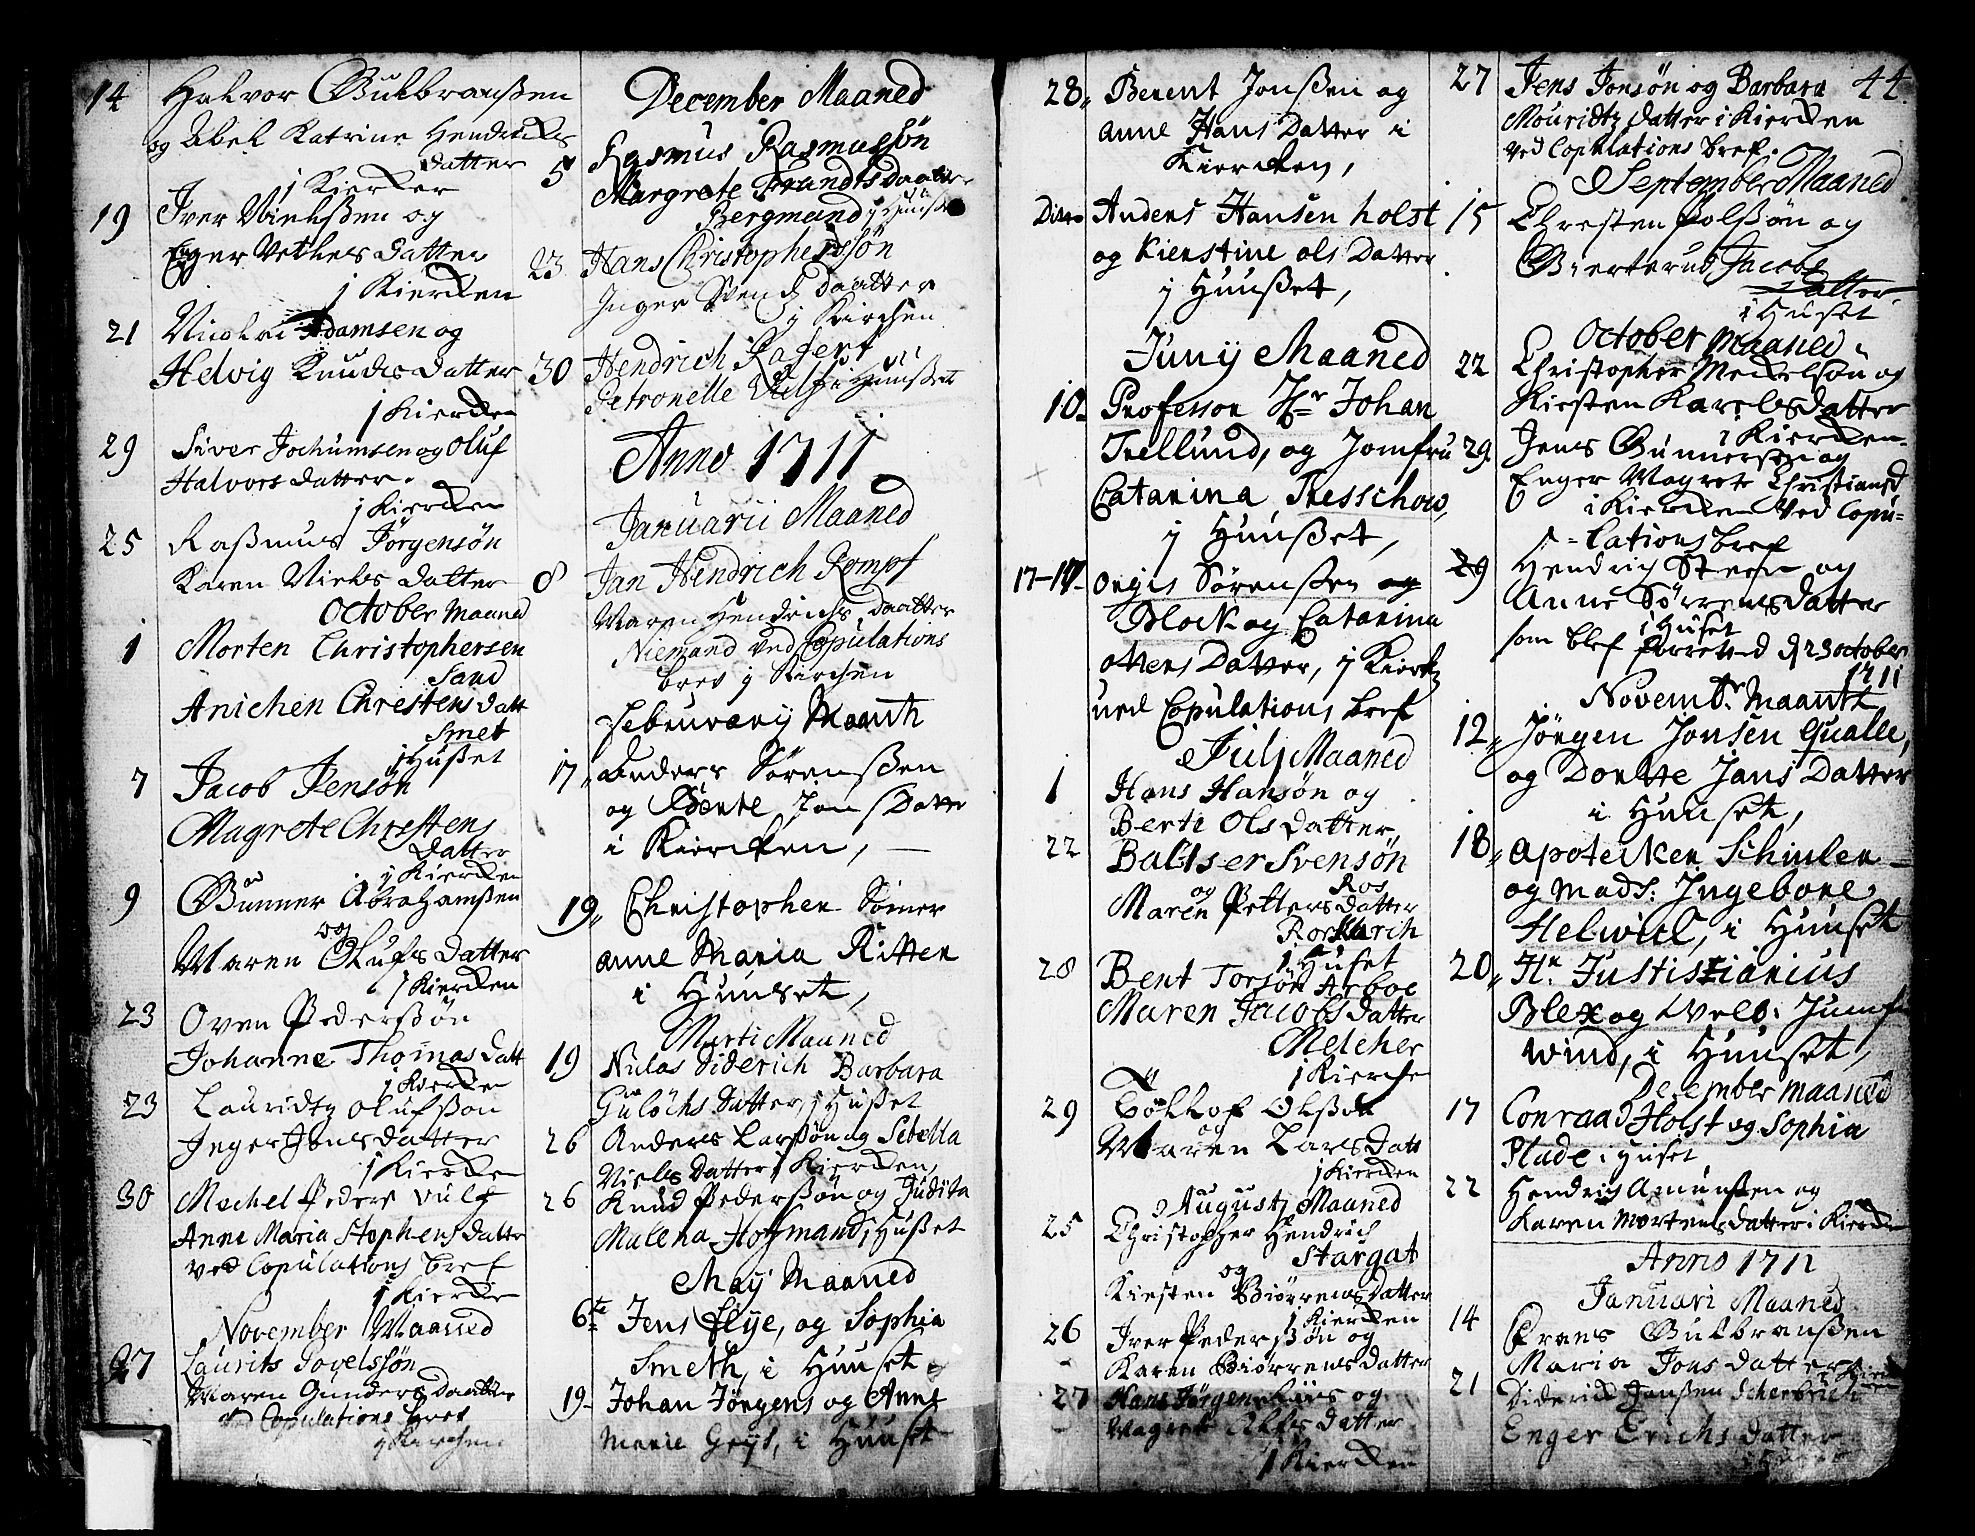 14 Halvor Gulbranßen
og Abel Katrine Hendricks
datter
j Kiercken
19 Iver Nielsßen og
Eger Vetlesdatter
j Kiercken
21 Nicolai Adamsen og
Helvig Knudsdatter
j Kiercken
29 Siver Jochumsen og Oluf
Halvorsdatter.
j Kiercken
25 Raßmus Jörgensön
Karen Nielsdatter
October Maaned
1 Morten Christophersen
Sand
Anichen Christensdatt
Smet
j Hußet
7 Jacob Jensön
Magrete Christens
Datter
j Kiercken
9 Gunner Abrahamßen
og
Maren Olufsdatter
j Kiercken
23 Oven Pederßön
Johanne Thomasdatt
j Kiercken
23 Lauridtz Olufsson
Inger Jensdatter
j Kiercken
30 Mechel Peders Vulf
Anne Maria Stephensdatter
ved Copulations bref
j Kiercke
November Maaned
27 Laurits Povelssön
Maren Gunders daatter
ved Copulations bref
j Kirchen
December Maaned
5 Rasmus Rasmussön
Margrete Trundtsdaatter
Bergmand j Hußet
23 Hans Christophersön
Inger Svends Daatter
j Kirchen
30 Hendrich
Petronelle Vulf i Hußet
Anno 1711
Januarii Maaned
8 Jan Hendrich Kompf
Maren Hendrichs Daatter
Niemand ved Copulations
brev j Kirchen
Februvarij Maanth
17, Anders Sörenßen
og Dorte Jons Datter
i Kiercken,
19, Christopher Sömer
anne Maria Ritter
i Huuset,
Marti Maaned
19 Nilas Diderich Barbara
Gulöchs Datter j Hußet
26 Anders Larsön og Sebella
Niels datter j Kiercken,
26 Knud Pederßön og Judita
Malena Hofmands j Hußet
May Maaned
6te Jens Flye, og Sophia
Smeth, i Huuset
19- Johan Jörgens og Anne
Marie Grys, i Huuset
28, Berent Jonßen og
anne Hans Datter i
Kiercken,
Ditto Anders Hansen holst
og Kierstine ols Datter
j Huußet,
Junij Maaned
10- Professor Hr Johan
Trellund, og Jomfru
Catarina Tresschow,
j Huußet,
17-17- Sörenßen og
Block og Catarina
ottersDatter, j Kierk
ved Copulations bref
Julj Maaned
1 Hans Hansön og
Berte Olsdatter,
22 Baltser Svensön
og Ros
Maren Pettersdatter
j Huset
28 Bent Torsön Arboe
Maren Jacobsdatter
Melcher
j Kierche
29 Tollof Olßön
og
Maren Larsdatt
j Kiercken
Augustj Maaned
25 Christopher Hendrich
Stargat
og
Kiersten Biörrensdatter
j Kiercken
26 Iver Pedersßön og
Karen Biörrensdatter
27 Hans Jörgen Riis og
Magrete datter
j Kiercken
27 Jens Jonsön og Barbara 44.
Mouridtz datter i Kiercken
ved Copulations bref.
September Maaned
15 Christen Polßön og
Bierterud Jacobs
datter
i Huset
October Maaned
22 Christopher Meckelsön og
Kiersten Karelsdatter
i Kiercken.
29 Jens Gunnersen og
Enger Magrete Christiansd
i Kiercken ved Copu=
=lations bref
29 Hendrich Steen og
Anne Sörrensdatter
i Huset
som blef forrettved d 23 october
1711
Novembr. Maanth
12, Jörgen Jonsen Qualle,
og Dorete JansDatter
i Huuset,
18, apotecker Schiulen
og mads: Ingebore
Helwiel, i Huuset
20, Hr. Justistiarius
Blex og Velb: Jumf
Wind, i Huuset,
December maaned
17 Conraad Holst og Sophia
Plade i Huset
22 Hendrich Amunßen og
Karen Mortensdatter i Kiercken
Anno 1712
Januari Maaned
14 Frans Gulbranßen
Maria Jonsdatter
21 Diderich Jenßen
Enger Erichsdatter